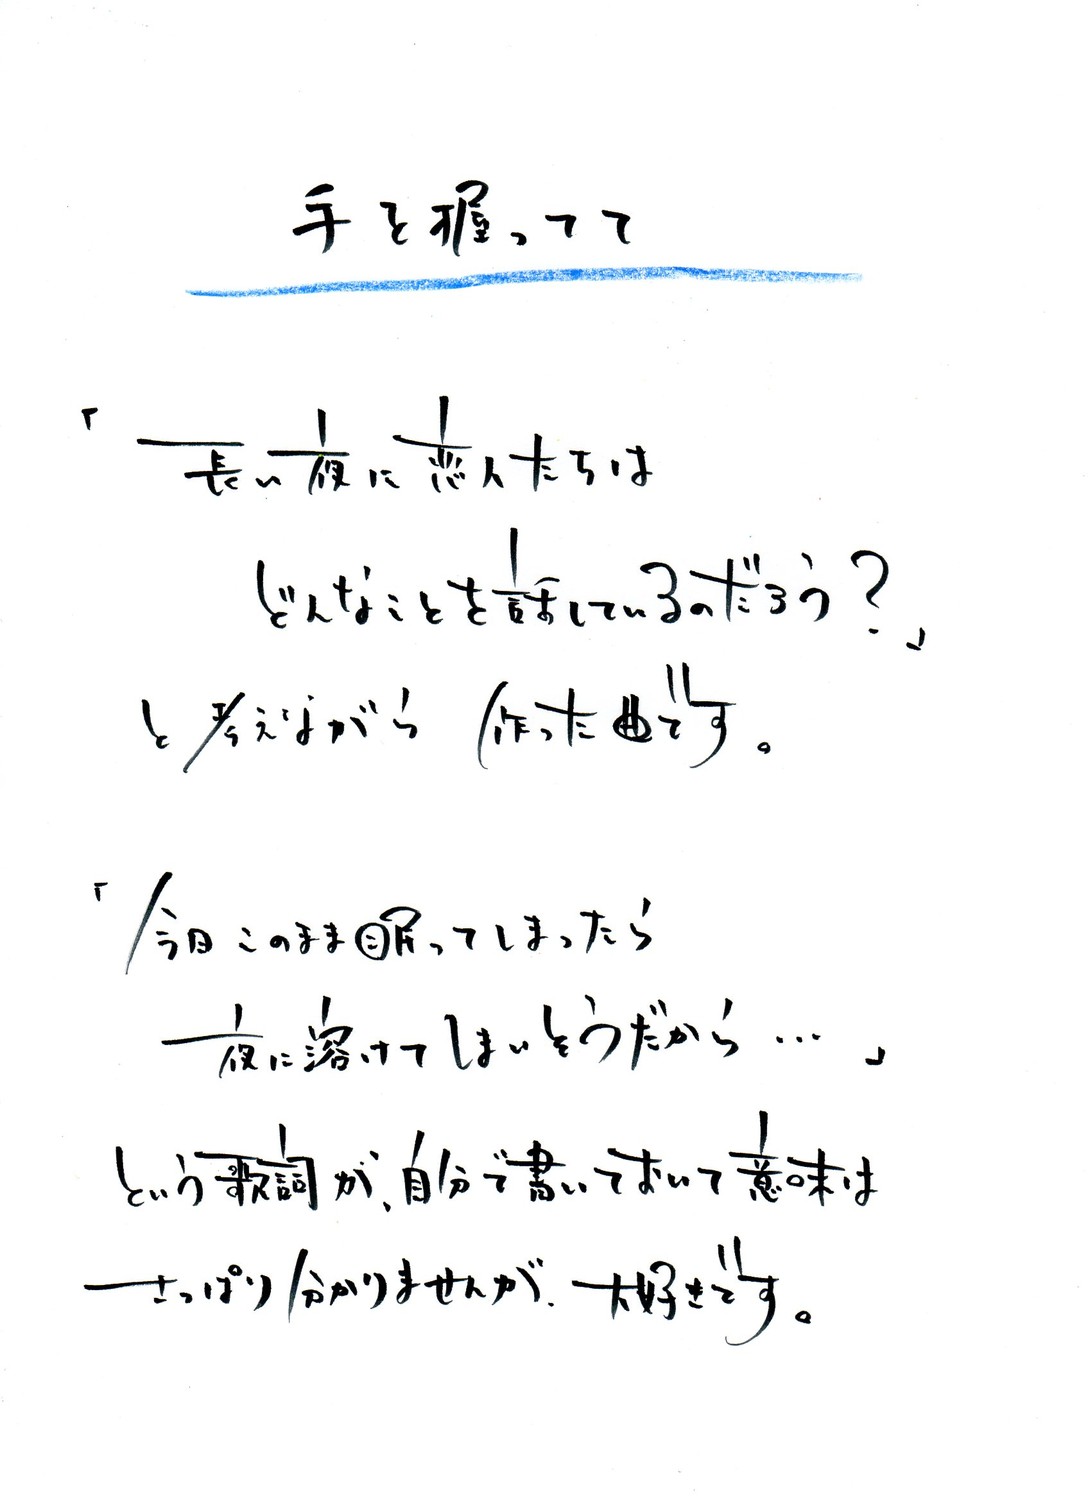 手を握ってて
「長い夜に恋人たちは
どんなことを話しているのだろう?」
と考えながら 作った曲です。
「今日このまま眠ってしまったら
夜に溶けてしまいそうだから…」
という歌詞が、自分で書いておいて意味は
さっぱり分かりませんが、大好きです。